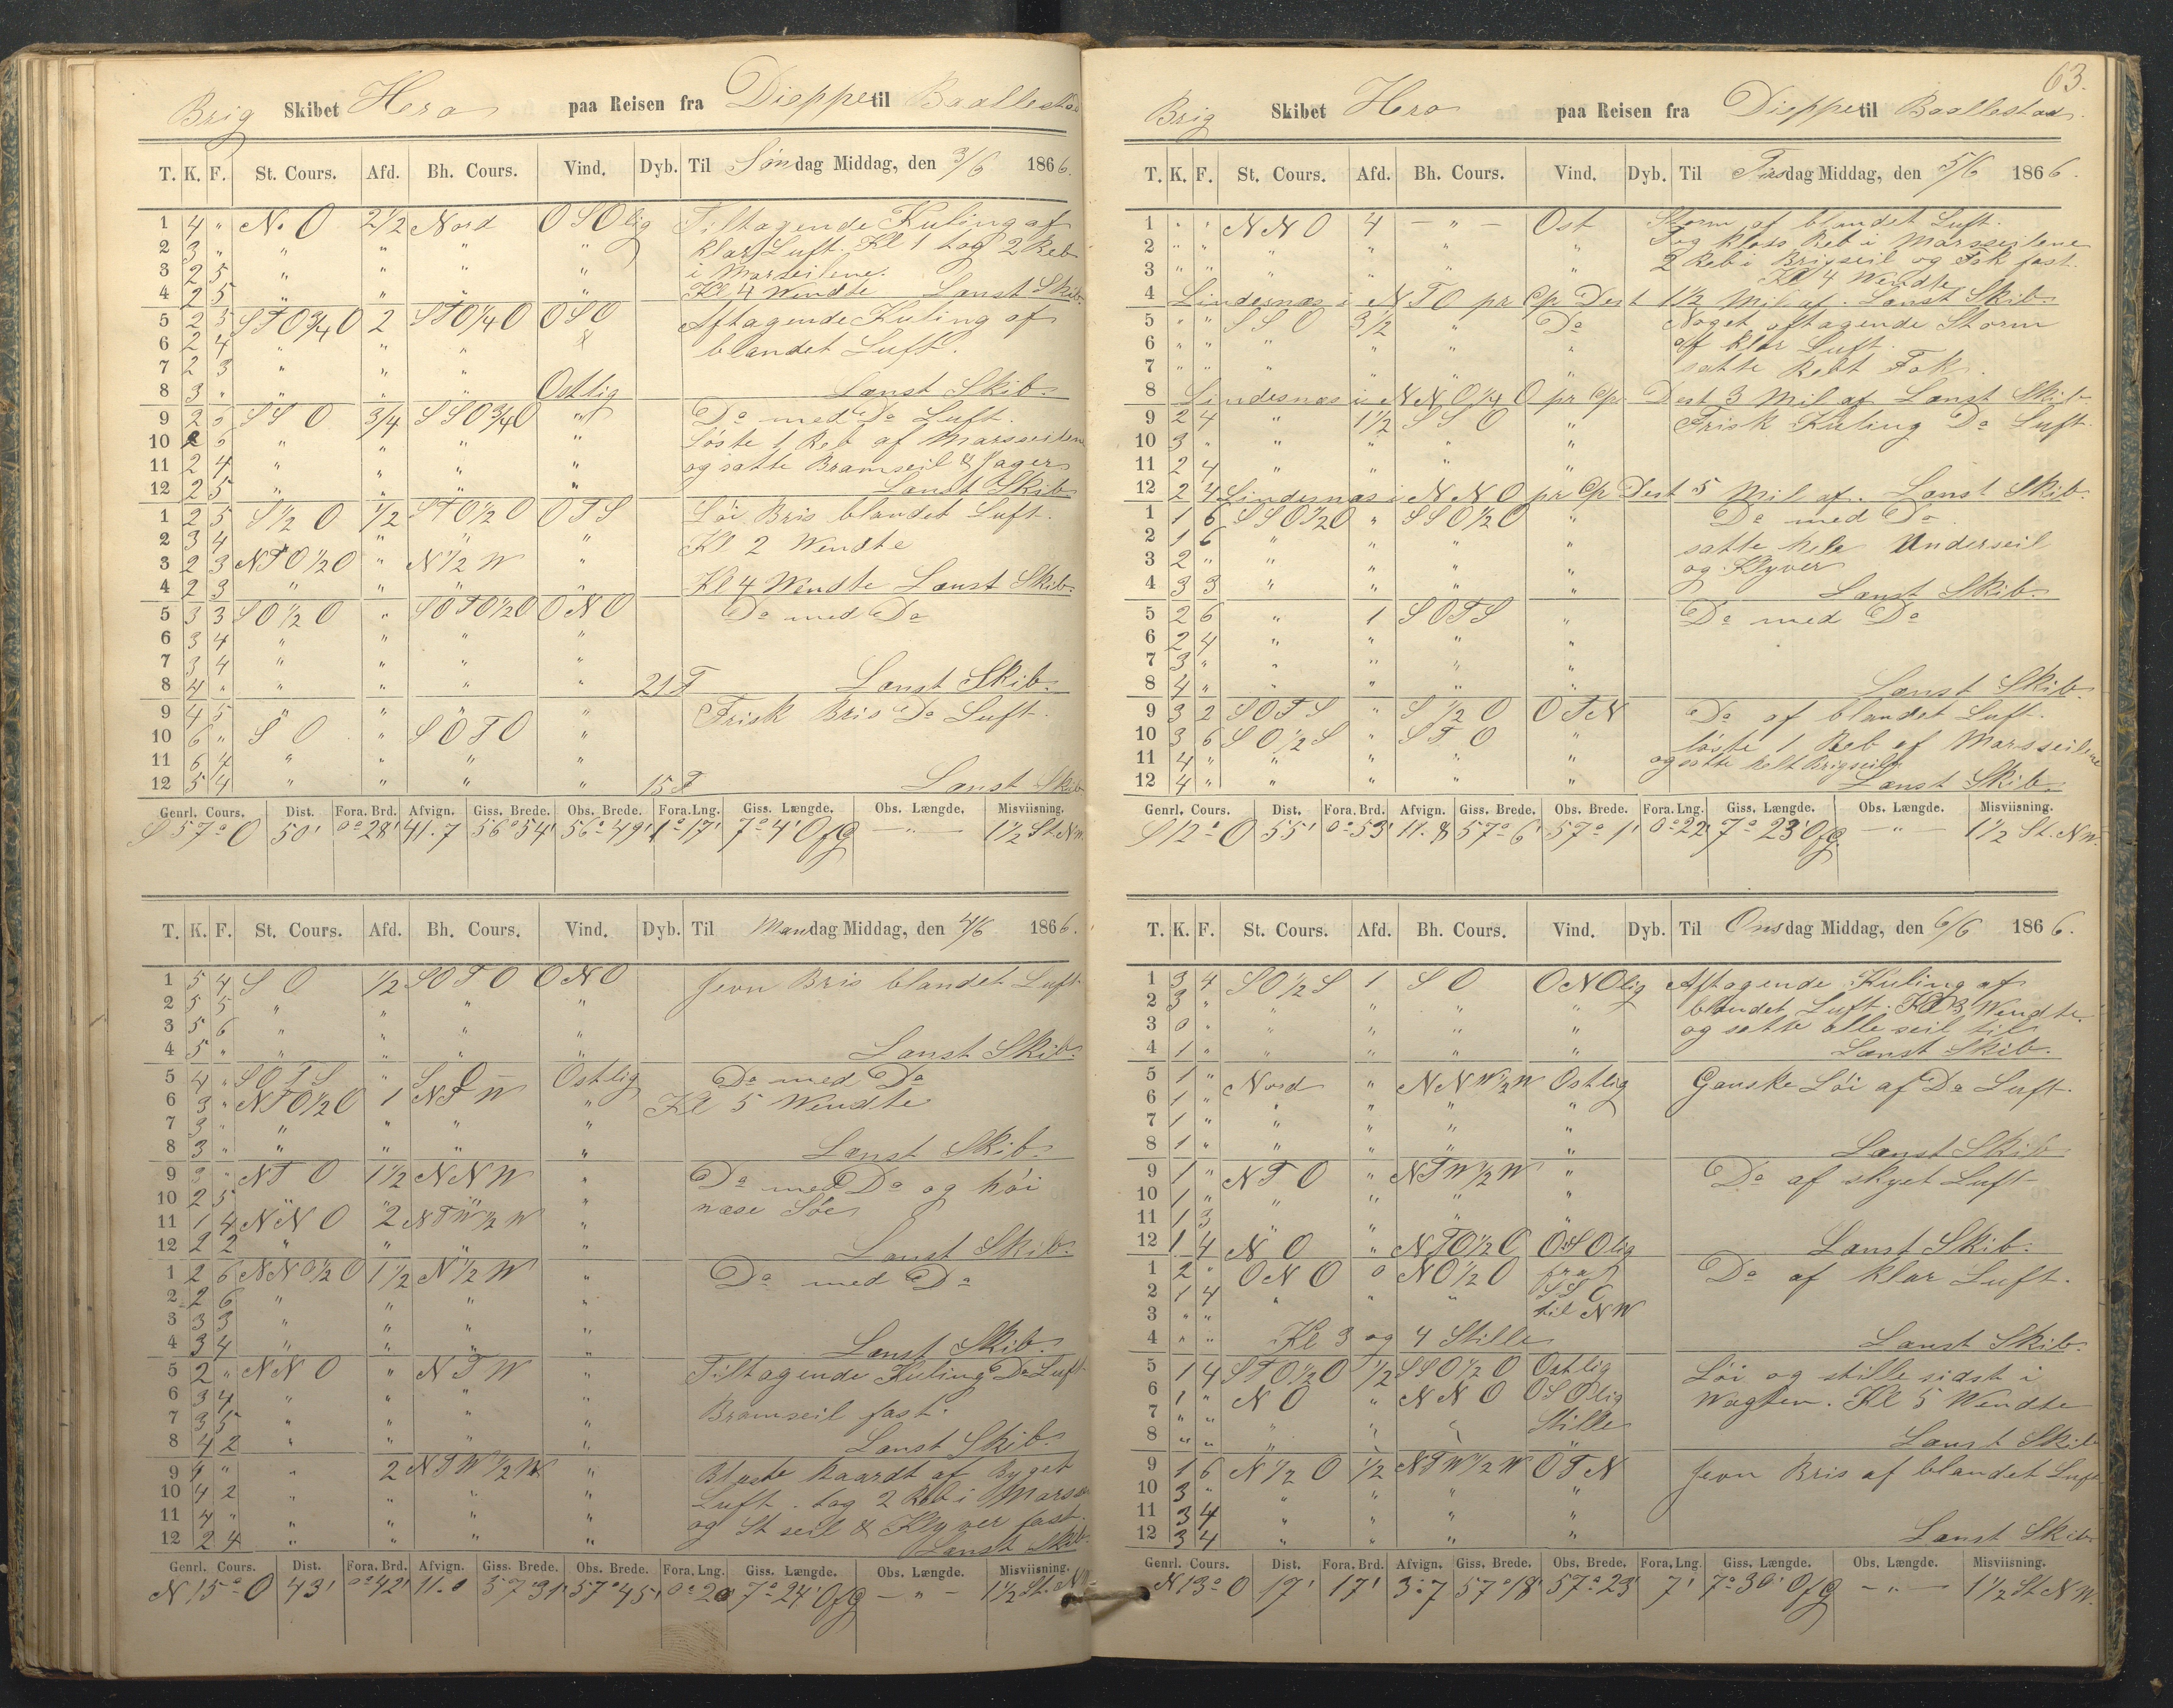 Brig Skibet Hero paa Reisen fra Dieppe til Baallestad
T. K. F. St. Cours. Afd. Bh. Cours. Vind. Dyb. Til Søndag Middag, den 3/6 1866.
1 4 " N.O 2½ Nord OSOlig Tiltagende Kuling af
2 3 " " " " " klar Luft. Kl 1 tog 2 Reb
3 2 5 " " " " i Marseilene.
4 2 5 " " " " Kl 4 Wendte Lænst Skib.
5 2 5 STO¾O 2 STO¼O OSO Aftagende Kuling af
6 2 4 " " " blandet Luft.
7 2 3 " " "
8 3 " " " " Ostlig Lænst Skib.
9 2 5 SSO ¾ SSO¾O " Do med Do Luft.
10 2 5 " " " " Løste 1 Reb af Marsseilene
11 2 4 " " " " og satte Bramseil & Jager
12 2 5 " " " " Lænst Skib
1 2 5 S½O ½ STO½O OTS Løi Bris blandet Luft.
2 3 4 " " " Kl 2 Wendte
3 2 3 NTO½O " N½W "
4 2 3 " " " " Kl 4 Wendte Lænst Skib.
5 3 3 SO½O " SOTO½O ONO Do med Do
6 3 4 " " " "
7 3 4 " " " "
8 4 " " " " " 21 F Lænst Skib.
9 4 5 " " " " Frisk Bris Do Luft.
10 6 " SO " SOTO "
11 6 4 " " " "
12 5 4 " " " " 15 F Lænst Skib
Genrl. Cours. Dist. Fora. Brd. Afvign. Giss. Brede. Obs. Brede. Fora. Lng. Giss. Længde. Obs. Længde. Misviisning.
S 57° O 50' 0° 28' 41.7 56° 54' 56° 49' 1° 17' 7° 4' OfG — " — 1½ St. NW.
T. K. F. St. Cours. Afd. Bh. Cours. Vind. Dyb. Til Mandag Middag, den 4/6 1866.
1 5 4 SO ½ SOTO ONO Jevn Bris blandet Luft
2 5 5 " " " "
3 5 6 " " "
4 5 " " " " " Lænst Skib.
5 4 " SOTS " SO Ostlig Do med Do
6 3 " NTO½O 1 NTW " Kl 5 Wendte
7 3 " " " " "
8 3 " " " " " Lænst Skib
9 3 " NTO 1½ NNW " Do med Do og høi
10 2 5 " " " " næse Søe
11 1 4 NNO 2 NTW½W "
12 2 2 " " " " Lænst Skib.
1 2 6 NNO½O 1½ N½W " Do med Do
2 2 6 " " " "
3 3 3 " " " "
4 3 4 " " " " Lænst Skib.
5 2 " NNO " NTW " Tiltagende Kuling Do Luft
6 3 4 " " " " Bramseil fast.
7 3 5 " " " "
8 4 2 " " " " Lænst Skib.
9 4 " " 2 NTW½W " Blæste haardt af Byget
10 4 2 " " " " Luft. tog 2 Reb i Marss
11 4 " " " " " og St seil & Klyver fast.
12 2 4 " " " " Lænst Skib.
Genrl. Cours. Dist. Fora. Brd. Afvign. Giss. Brede. Obs. Brede. Fora. Lng. Giss. Længde. Obs. Længde. Misviisning.
N 15° O 43' 0° 42' 11.0 57° 31' 57° 45' 0° 20 7° 24' OfG — " — 1½ St. NW.
63.
Brig Skibet Hero paa Reisen fra Dieppe til Baallestad.
T. K. F. St. Cours. Afd. Bh. Cours. Vind. Dyb. Til Tirsdag Middag, den 5/6 1866.
1 " " NNO 4 — " — Ost Storm af blandet Luft.
2 " " " " " " Tog klos Reb i Marsseilene
3 " " " " " " 2 Reb i Brigseil og Fok fast.
Kl 4 Wendte
4 Lindesnæs i NTO pr Cp Dest 1½ Mil af. Lænst Skib.
5 " " SSO 3½ " Do Noget aftagende Storm
6 " " " " " " af klar Luft.
7 " " " " " " satte Rebt Fok.
8 Lindesnæs i NNO¼O pr Cp Dest 3 Mil af Lænst Skib
9 2 4 " 1½ SSO " Frisk Kuling Do Luft.
10 3 " " " " "
11 2 4 " " " "
12 2 4 Lindesnæs i NNO pr Cp Dest 5 Mil af. Lænst Skib.
1 1 6 SSO½O " SSO½O " Do med Do
2 1 6 " " " " satte hele Underseil
3 2 " " " " " og Klyver
4 3 3 " " " " Lænst Skib.
5 2 6 " 1 SOTS " Do med Do
6 2 4 " " " "
7 3 " " " " "
8 4 " " " " " Lænst Skib.
9 3 2 SOTS " S½O OTN Do af blandet Luft.
10 3 6 SO½S " STO løste 1 Reb af Marsseilene
11 4 " " " " " og satte helt Brigseil
12 4 " " " " " Lænst Skib.
Genrl. Cours. Dist. Fora. Brd. Afvign. Giss. Brede. Obs. Brede. Fora. Lng. Giss. Længde. Obs. Længde. Misviisning.
S 12° O 55' 0° 53' 11.8 57° 6' 57° 1' 0° 22' 7° 23' OfG. — " — 1½ St. NW.
T. K. F. St. Cours. Afd. Bh. Cours. Vind. Dyb. Til Onsdag Middag, den 6/6 1866.
1 3 4 SO½S 1 SO ONOlig Aftagende Kuling af
2 3 " " " " " blandet Luft. Kl 3 Wendte.
3 0 " " " " " og satte alle seil til
4 1 " " " " " Lænst Skib.
5 1 " Nord " NNW½W Ostlig Ganske Løi af Do Luft.
6 1 " " " " "
7 1 " " " " "
8 1 " " " " " Lænst Skib
9 1 " NTO " NTW½W " Do af skyet Luft
10 1 " " " " "
11 1 3 " " " "
12 1 4 NO " NTO½O OSOlig Lænst Skib.
1 2 " ONO 0 NO½O fra Do af klar Luft.
2 1 4 " " " SSO
3 " " til NW
4 " " Kl 3 og 4 Stille Lænst Skib.
5 1 4 STO½O ½ SSO½O Ostlig Løi og stille sidst i
6 1 " NO " NNO OSOlig Wagten. Kl 5 Wendte
7 " " " " " Stille
8 " " " " " " Lænst Skib
9 1 6 N½O ½ NTW½W OTN Jevn Bris af blandet Luft
10 3 " " " " "
11 3 4 " " " "
12 3 4 " " " " Lænst Skib.
Genrl. Cours. Dist. Fora. Brd. Afvign. Giss. Brede. Obs. Brede. Fora. Lng. Giss. Længde. Obs. Længde. Misviisning.
N 13° O 17' 17' 3.7 57° 18' 57° 23' 7' 7° 30' OfG — " — 1½ St NW.